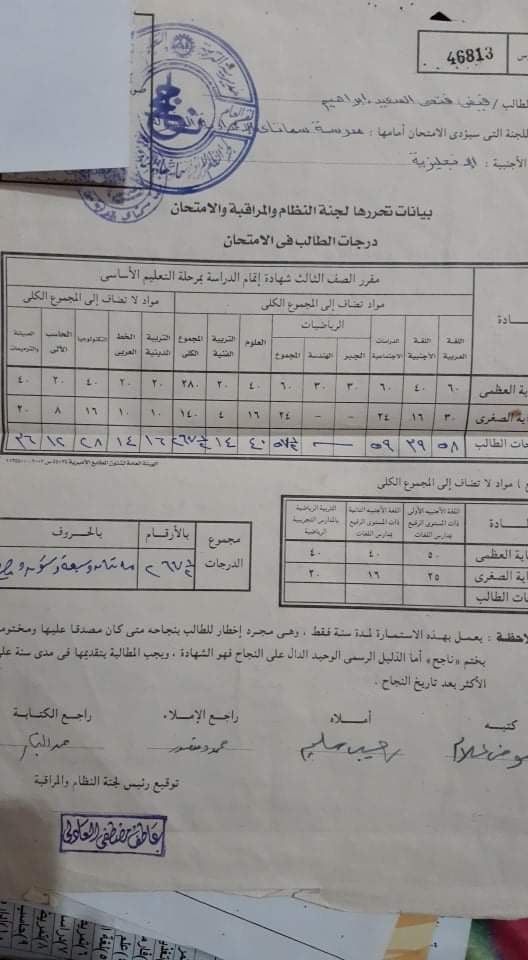 46813
فتحى السعيد ابراهيم
للجنة التى سيؤدى الامتحان أمامها : مدرسة
الأجنبية :
بيانات تحررها لجنة النظام والمراقبة والامتحان
درجات الطالب فى الامتحان
مقرر الصف الثالث شهادة إتمام الدراسة بمرحلة التعليم الأساسى
مواد تضاف إلى المجموع الكلى مواد لا تضاف إلى المجموع الكلى
اللغة العربية اللغة الأجنبية الدراسات الاجتماعية الرياضيات الجبر الهندسة المجموع العلوم التربية الفنية المجموع الكلى التربية الدينية الخط العربى التكنولوجيا الحاسب الآلى الصيانة والترميمات
العظمى ٦٠ ٤٠ ٦٠ ٣٠ ٣٠ ٦٠ ٤٠ ٢٠ ٢٨٠ ٢٠ ٢٠ ٤٠ ٢٠ ٤٠
الصغرى ٣٠ ١٦ ٢٤ – – ٢٤ ١٦ ٤ ١٤٠ ١٠ ١٠ ١٦ ٨ ٢٠
الطالب ٥٨ ٣٩ ٥٩ — ٥٧ ½ ٤٠ ١٤ ٢٦٧ ½ ١٦ ١٤ ٢٨ ١٢ ٣٦
الهيئة العامة لشئون المطابع الأميرية
مواد لا تضاف إلى المجموع الكلى
اللغة الأجنبية الأولى ذات المستوى الرفيع بمدارس اللغات اللغة الأجنبية الثانية ذات المستوى الرفيع بمدارس اللغات التربية الرياضية بالمدارس التجريبية الرياضية
العظمى ٥٠ ٤٠ ٤٠
الصغرى ٢٥ ١٦ ٢٠
الطالب
مجموع الدرجات بالأرقام بالحروف
٢٦٧ ½ مائتان وسبعة وستون
: يعمل بهذه الاستمارة لمدة سنة فقط ، وهى مجرد إخطار للطالب بنجاحه متى كان مصدقا عليها
بختم «ناجح» أما الدليل الرسمى الوحيد الدال على النجاح فهو الشهادة ، ويجب المطالبة بتقديمها فى مدى سنة
الأكثر بعد تاريخ النجاح .
كتبه أملاه راجع الإملاء راجع الكتابة
توقيع رئيس لجنة النظام والمراقبة
عاطف مصطفى العادلى